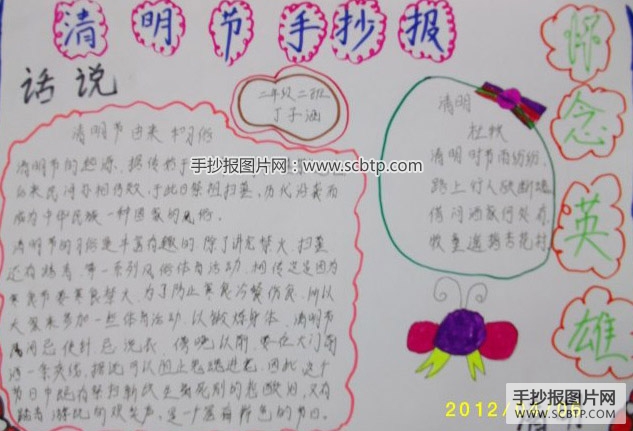 清明节手抄报
怀念英雄
话说
二年级二班
丁子涵
清明节由来和习俗
清明节的起源，据传始于
民间亦相仿效，于此日祭祖扫墓，历代沿袭而
成为中华民族一种固定的风俗。
清明节的习俗是丰富有趣的，除了讲究禁火、扫墓
还有踏青、等一系列风俗体育活动，相传这是因为
寒食节要寒食禁火，为了防止寒食冷餐伤身，所以
大家来参加一些体育活动，以锻炼身体。清明节
节日中既有祭扫新坟生离死别的悲酸泪，又有
踏青游玩的欢笑声，是一个富有特色的节日。
清明
杜牧
清明时节雨纷纷，
路上行人欲断魂
借问酒家何处有
牧童遥指杏花村
手抄报图片网:www.scbtp.com
2012/04/06
手抄报图片网
WWW.SCBTP.COM